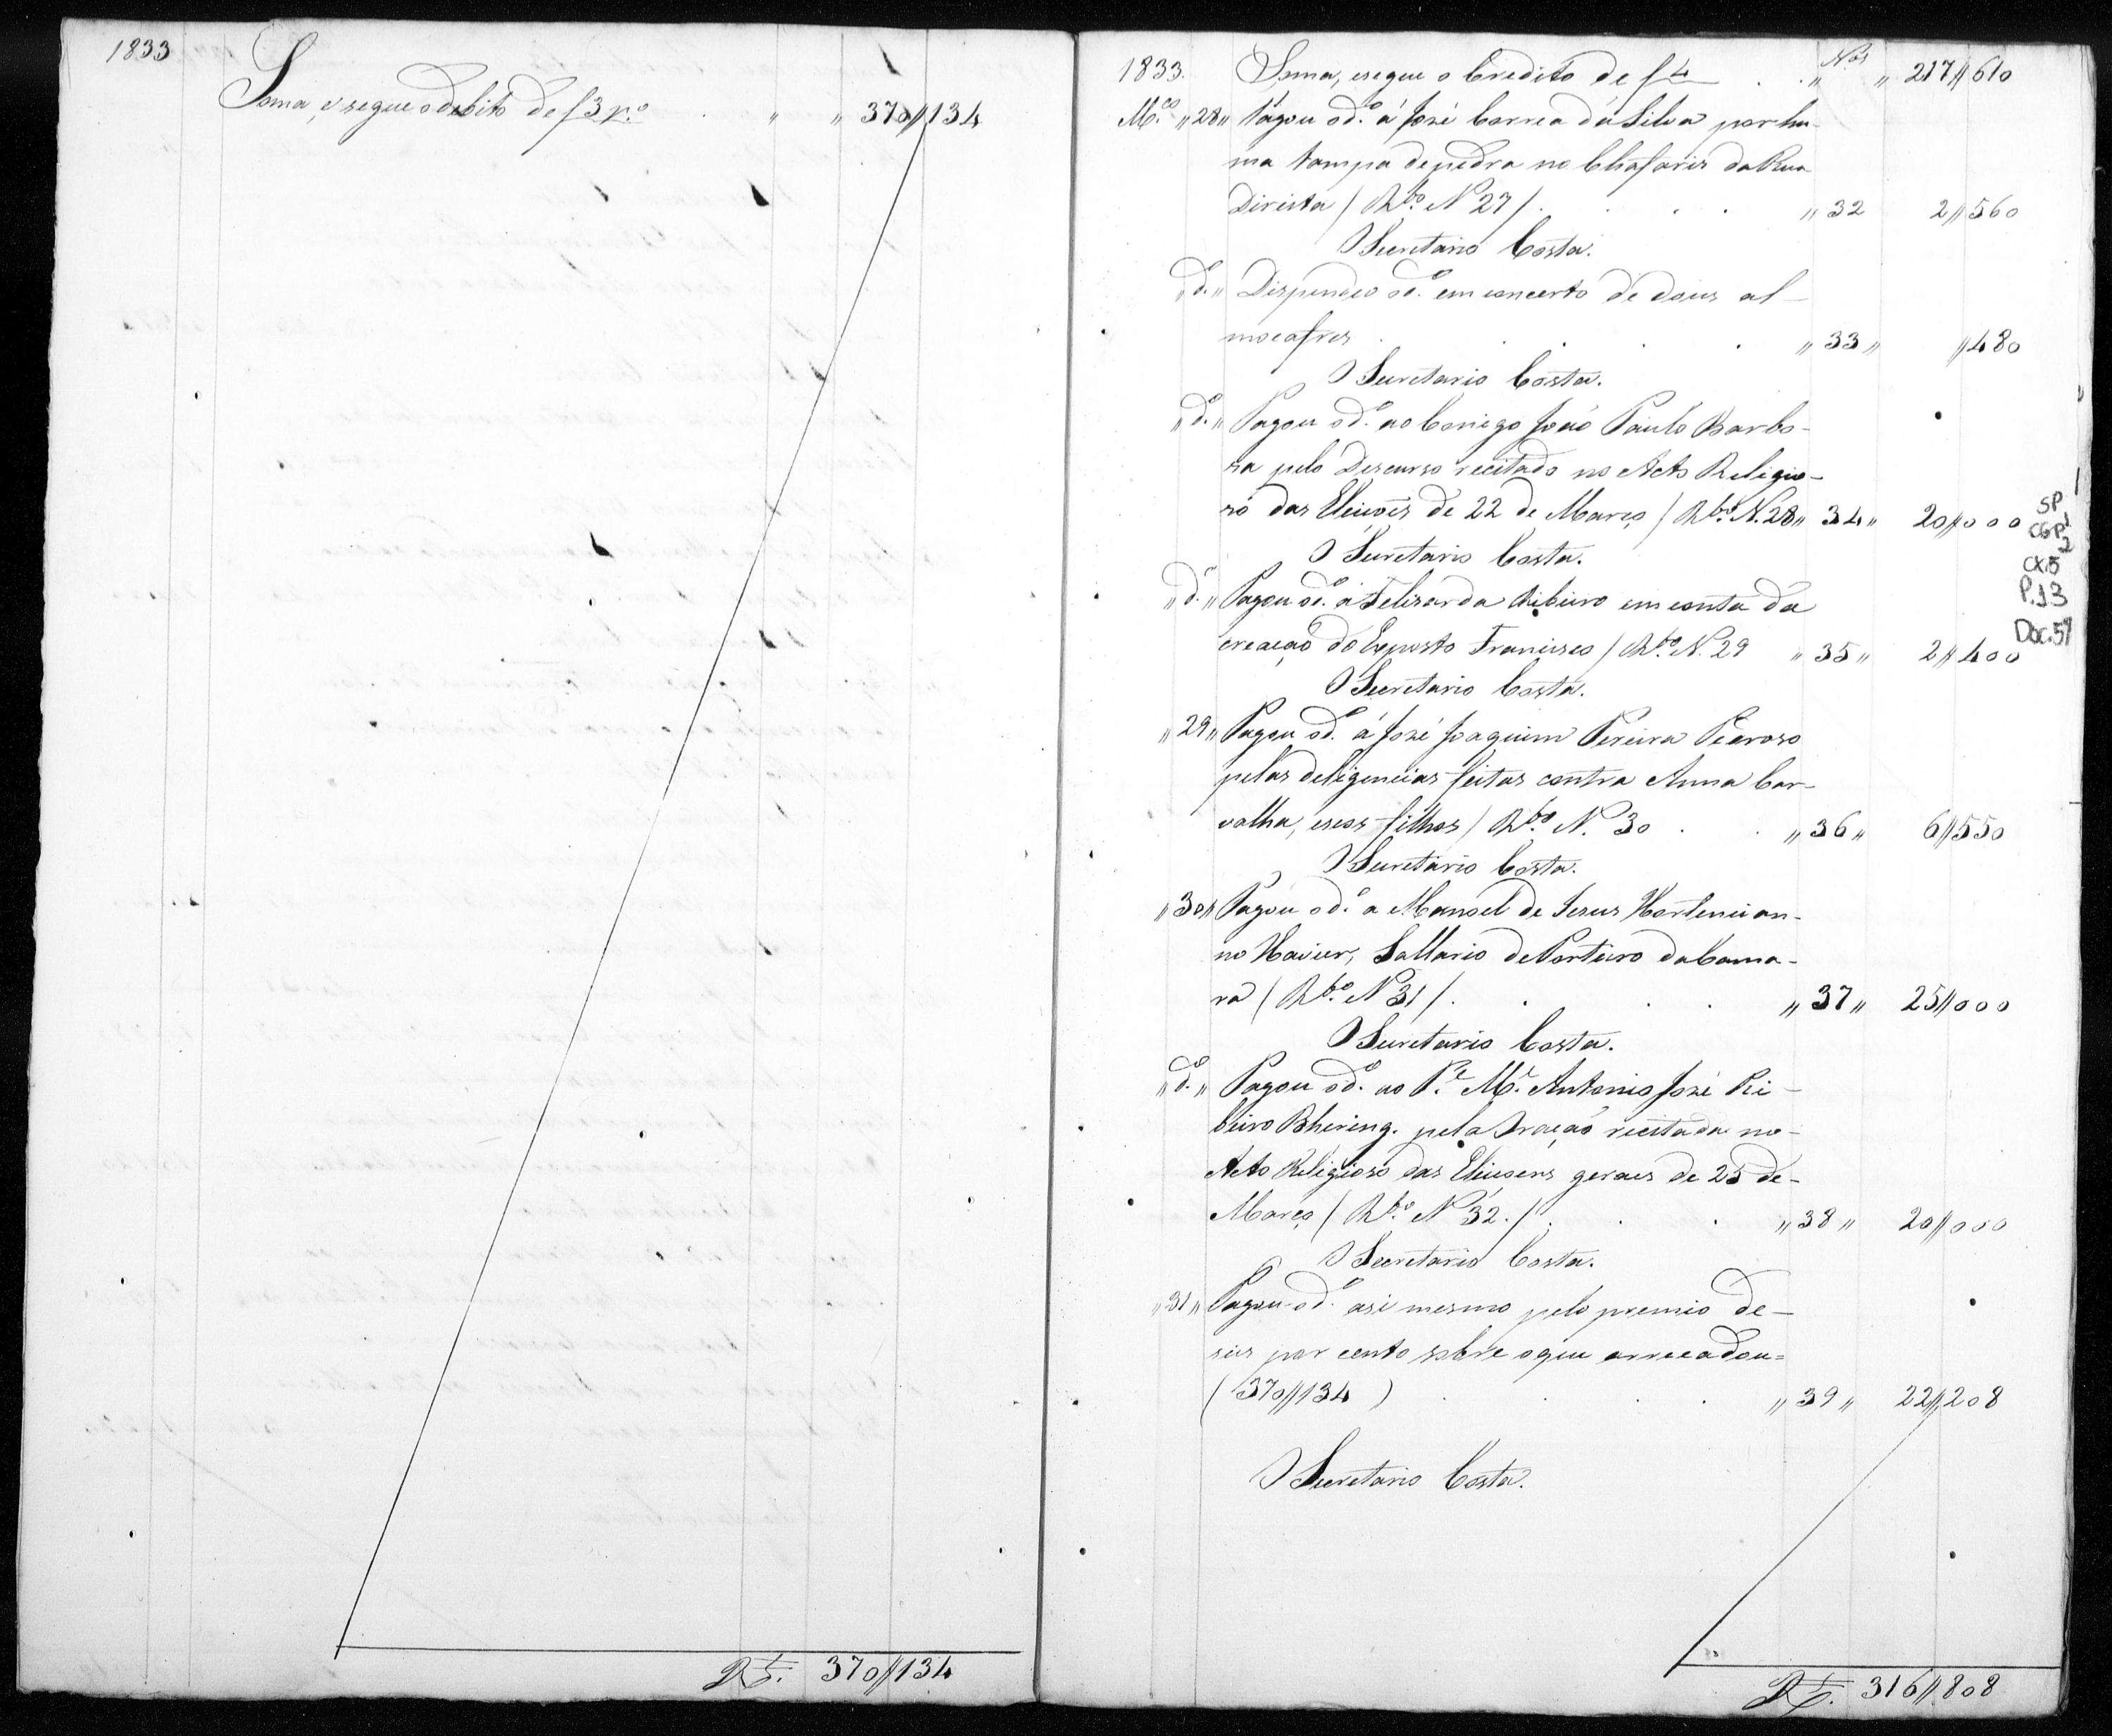 1833
Soma, e segue o debito de f 3 v.º " " 370//134
R.s 370//134
N.os
1833. Soma, e segue o Credito de f 4 " " 217//610
M.ço "28" Pagou o d.º á José Correa da Silva por hu-
ma tampa de pedra no Chafaris da Rua
Direita / R.bo N 27 / . " 32 2//560
O Secretario Costa.
" d.º " Dispendeo o d.º em concerto de dous al-
mocafres " 33 " //480
O Secretario Costa.
" d.º " Pagou o d.º ao Conego João Paulo Barbo-
za pelo Discurso recitado no Acto Religio-
so das Eleiçoẽs de 22 de Março / R.bo N. 28 " 34 " 20//000
O Secretario Costa.
" d.º " Pagou o d.º á Felizarda Ribeiro em conta da
creação do Exposto Francisco / R.bo N. 29 " 35 " 2//400
O Secretario Costa.
" 29 " Pagou o d.º á José Joaquim Pereira Pedrozo
pelas deligencias feitas contra Anna Car-
valha, e seos filhos / R.bo N. 30 " 36 " 6//550
O Secretario Costa.
" 30 " Pagou o d.º a Manoel de Jesus Hortencian-
no Xavier, Sallario de Porteiro da Cama-
ra / R.bo N 31 / . " 37 " 25//000
O Secretario Costa.
" d.º " Pagou o d.º ao P.e M.e Antonio José Ri-
beiro Bhering. pela Oração recitada no
Acto Religioso das Eleiçoens geraes de 25 de
Março / R.bo N 32. / . " 38 " 20//000
O Secretario Costa.
" 31 " Pagou o d.º a si mesmo pelo premio de
seis por cento sobre o que arrecadou=
( 370//134 ) " 39 " 22//208
O Secretario Costa.
R.s 316//808
SP
CGP 1
2
CX.5
P.13
Doc.59